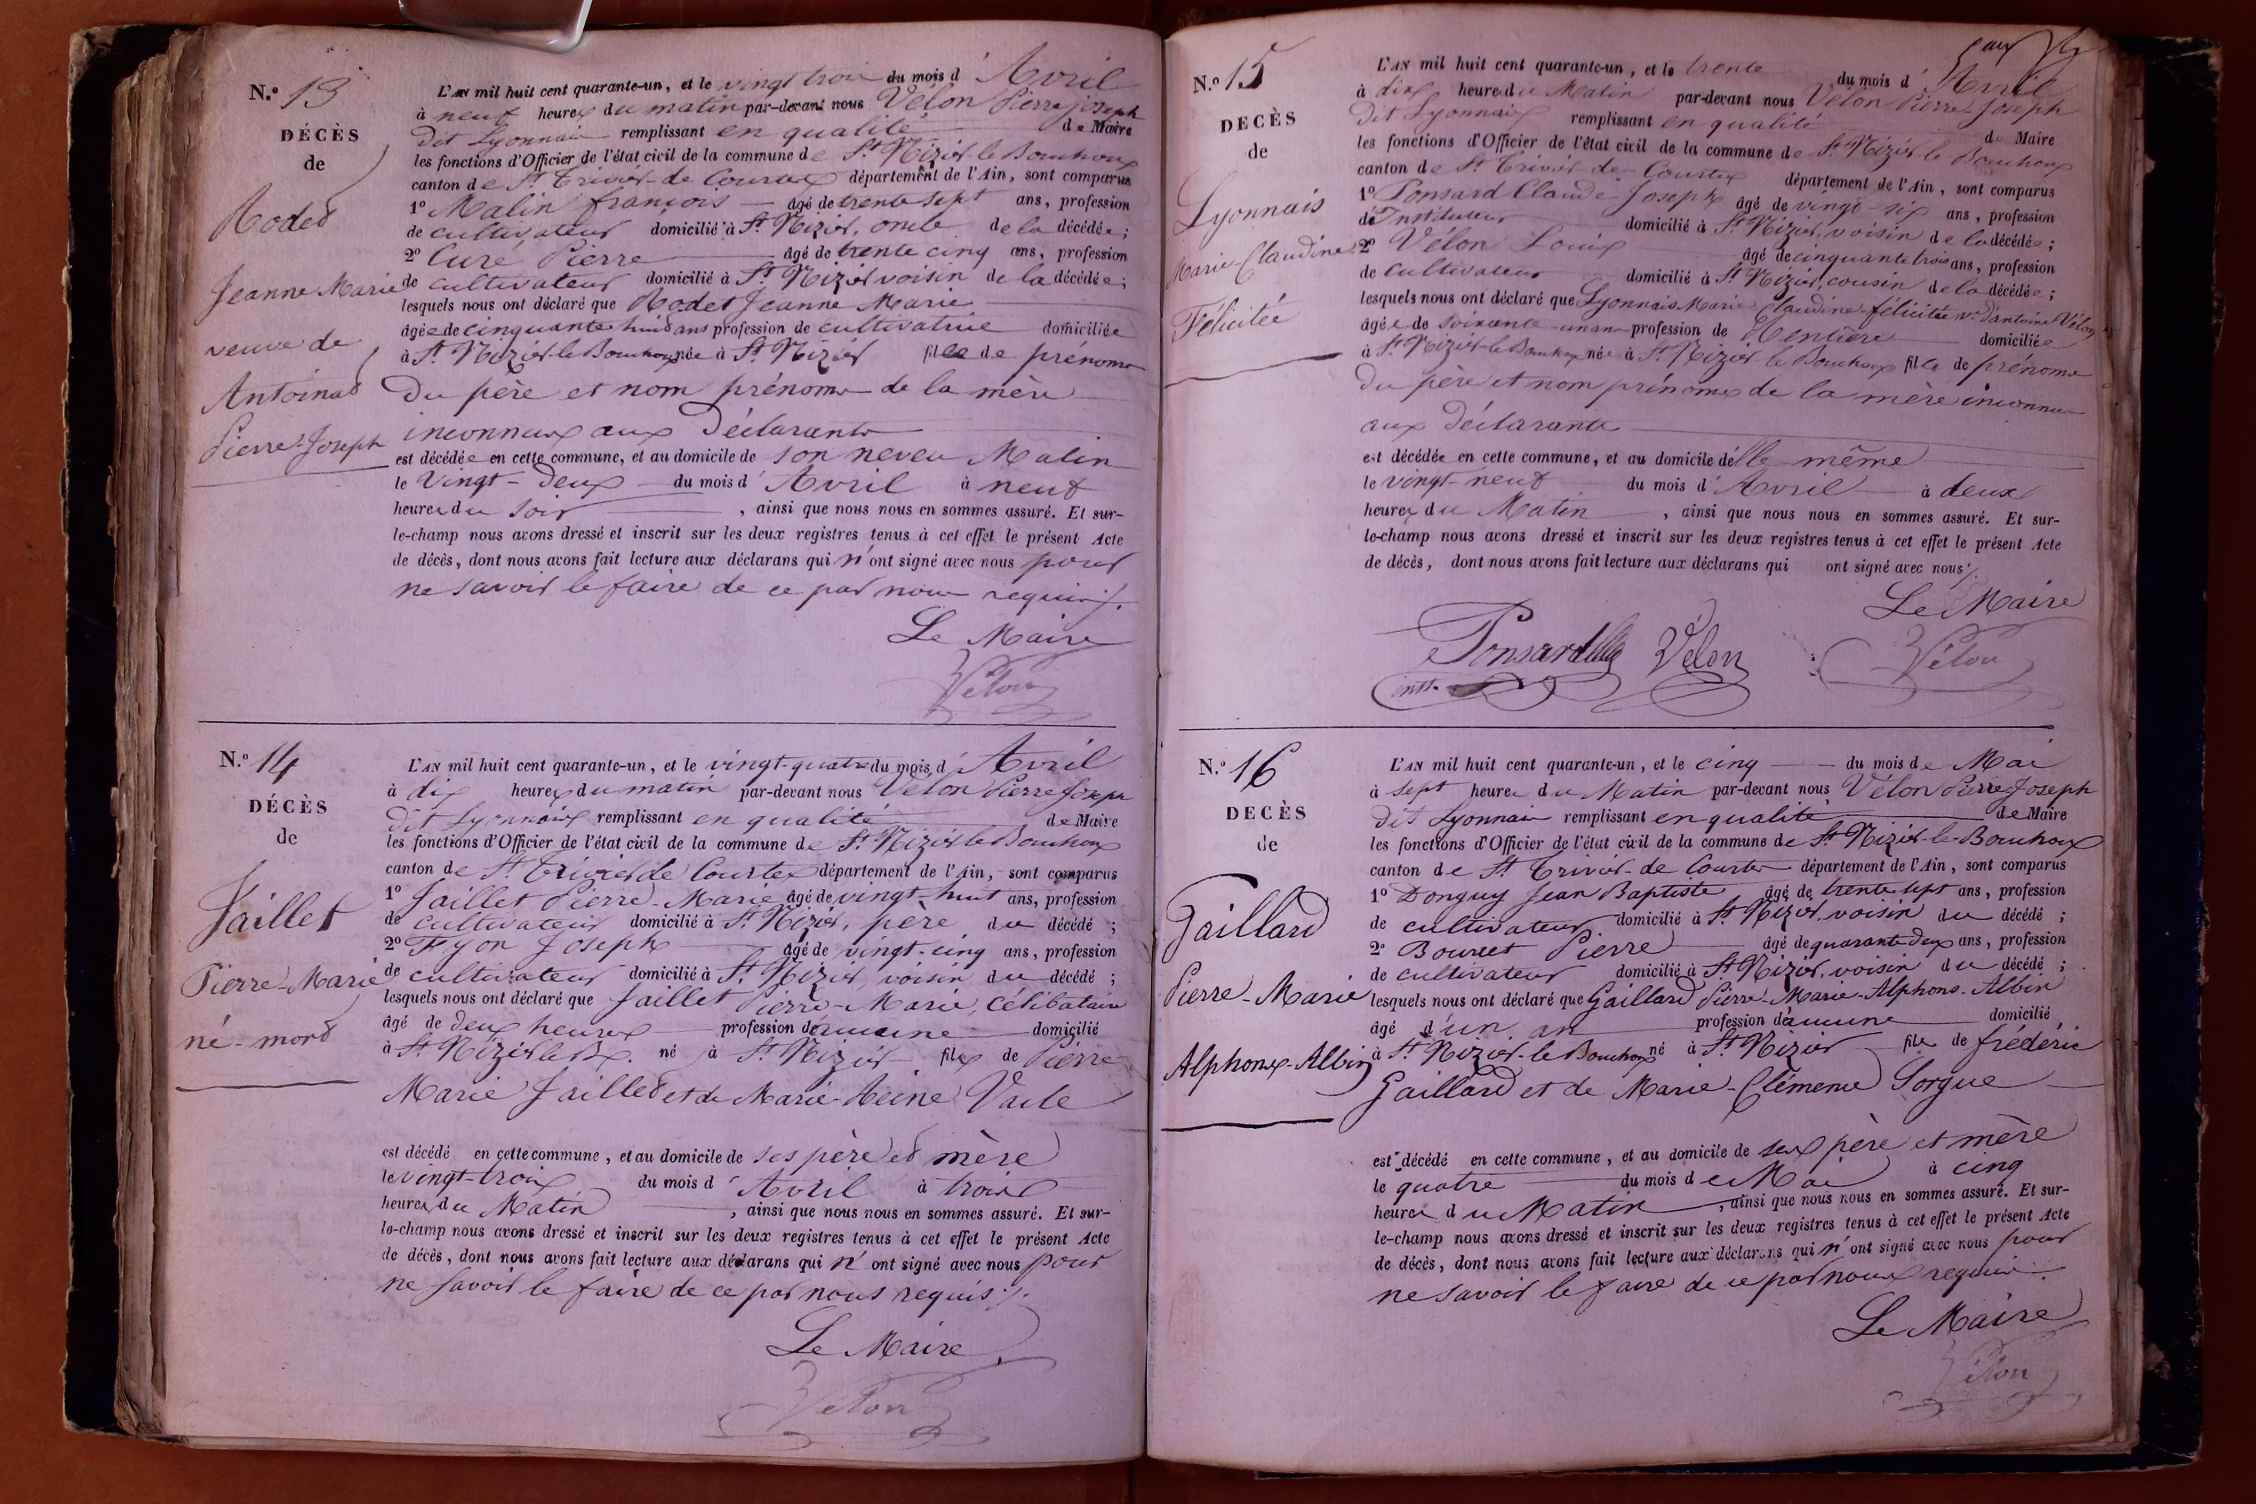 N.o 13
DÉCÈS
de
Rodet
Jeanne Marie
veuve de
Antoinat
Pierre-Joseph
L'AN mil huit cent quarante-un, et le vingt trois du mois d'Avril
à neuf heures du matin par-devant nous Vélon Pierre Joseph
dit Lyonnais remplissant en qualité de Maire
les fonctions d'Officier de l'état civil de la commune de St Nizier le Bouchoux
canton de St Trivier-de Courtes département de l'Ain, sont comparus
1o Matin françois âgé de trente sept ans, profession
de cultivateur domicilié à St Nizier, oncle de la décédée;
2o Curé Pierre âgé de trente cinq ans, profession
de cultivateur domicilié à St Nizier voisin de la décédée;
lesquels nous ont déclaré que Rodet Jeanne Marie
âgée de cinquante huit ans profession de cultivatrice domiciliée
à St Nizier-le-Bouchoux née à St Nizier fille de prénoms
du père et nom prénoms de la mère
inconnus aux déclarants
est décédée en cette commune, et au domicile de son neveu Matin
le vingt-deux du mois d'Avril à neuf
heures du soir, ainsi que nous nous en sommes assuré. Et sur-
le-champ nous avons dressé et inscrit sur les deux registres tenus à cet effet le présent Acte
de décès, dont nous avons fait lecture aux déclarans qui n'ont signé avec nous pour
ne savoir le faire de ce par nous requis ./.
Le Maire
Vélon
N.o 14
DÉCÈS
de
Jaillet
Pierre-Marie
né-mort
L'AN mil huit cent quarante-un, et le vingt-quatre du mois d'Avril
à dix heures du matin par-devant nous Vélon Pierre Joseph
dit Lyonnais remplissant en qualité de Maire
les fonctions d'Officier de l'état civil de la commune de St Nizier le Bouchoux
canton de St Trivier de Courtes département de l'Ain, sont comparus
1o Jaillet Pierre-Marie âgé de vingt huit ans, profession
de cultivateur domicilié à St Nizier, père du décédé;
2o Fyon Joseph âgé de vingt-cinq ans, profession
de cultivateur domicilié à St Nizier voisin du décédé;
lesquels nous ont déclaré que Jaillet Pierre-Marie, célibataire
âgé de deux heures profession d'aucune domicilié
à St Nizier le Bx. né à St Nizier fils de Pierre
Marie Jaillet et de Marie-Reine Varle
est décédé en cette commune, et au domicile de ses père et mère
le vingt-trois du mois d'Avril à trois
heures du Matin, ainsi que nous nous en sommes assuré. Et sur-
le-champ nous avons dressé et inscrit sur les deux registres tenus à cet effet le présent Acte
de décès, dont nous avons fait lecture aux déclarans qui n'ont signé avec nous pour
ne savoir le faire de ce par nous requis ./.
Le Maire
Vélon
N.o 15
DÉCÈS
de
Lyonnais
Marie-Claudine
Félicitée
L'AN mil huit cent quarante-un, et le trente du mois d'Avril
à dix heures du Matin par-devant nous Vélon Pierre-Joseph
dit Lyonnais remplissant en qualité de Maire
les fonctions d'Officier de l'état civil de la commune de St Nizier le Bouchoux
canton de St Trivier de Courtes département de l'Ain, sont comparus
1o Ponsard Claude Joseph âgé de vingt-six ans, profession
d'Instituteur domicilié à St Nizier, voisin de la décédée;
2o Vélon Louis âgé de cinquante trois ans, profession
de cultivateur domicilié à St Nizier, cousin de la décédée;
lesquels nous ont déclaré que Lyonnais Marie Claudine félicitée ve d'antoine Vélon
âgée de soixante-un ans profession de Rentière domiciliée
à St Nizier-le-Bouchoux née à St Nizier le Bouchoux fille de prénoms
du père et nom prénoms de la mère inconnus
aux déclarants
est décédée en cette commune, et au domicile d'elle même
le vingt-neuf du mois d'Avril à deux
heures du Matin, ainsi que nous nous en sommes assuré. Et sur-
le-champ nous avons dressé et inscrit sur les deux registres tenus à cet effet le présent Acte
de décès, dont nous avons fait lecture aux déclarans qui ont signé avec nous ./.
Le Maire
Ponsard
instr. Vélon Vélon
N.o 16
DECÈS
de
Gaillard
Pierre-Marie
Alphonse-Albin
L'AN mil huit cent quarante-un, et le cinq du mois de Mai
à sept heures du Matin par-devant nous Vélon Pierre Joseph
dit Lyonnais remplissant en qualité de Maire
les fonctions d'Officier de l'état civil de la commune de St Nizier-le-Bouchoux
canton de St Trivier-de Courtes département de l'Ain, sont comparus
1o Donguy Jean Baptiste âgé de trente sept ans, profession
de cultivateur domicilié à St Nizier, voisin du décédé;
2o Bourcet Pierre âgé de quarante deux ans, profession
de cultivateur domicilié à St Nizier, voisin du décédé;
lesquels nous ont déclaré que Gaillard Pierre-Marie-Alphons-Albin
âgé d'un an profession d'aucune domicilié
à St Nizier-le Bouchoux né à St Nizier fils de frédéric
Gaillard et de Marie-Clémence Sorgue
est décédé en cette commune, et au domicile de ses père et mère
le quatre du mois de Mai à cinq
heures du Matin, ainsi que nous nous en sommes assuré. Et sur-
le-champ nous avons dressé et inscrit sur les deux registres tenus à cet effet le présent Acte
de décès, dont nous avons fait lecture aux déclarans qui n'ont signé avec nous pour
ne savoir le faire de ce par nous requis
Le Maire
Vélon